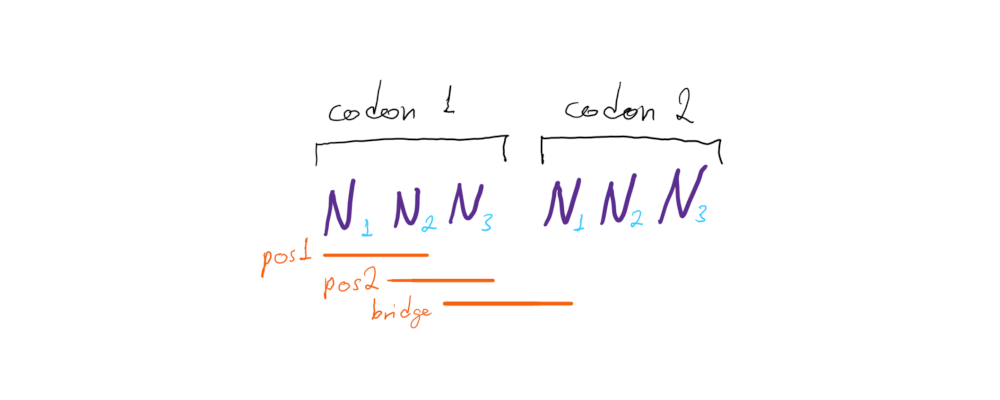 codon 1 codon 2
N1 N2 N3 N1 N2 N3
pos1
pos2
bridge